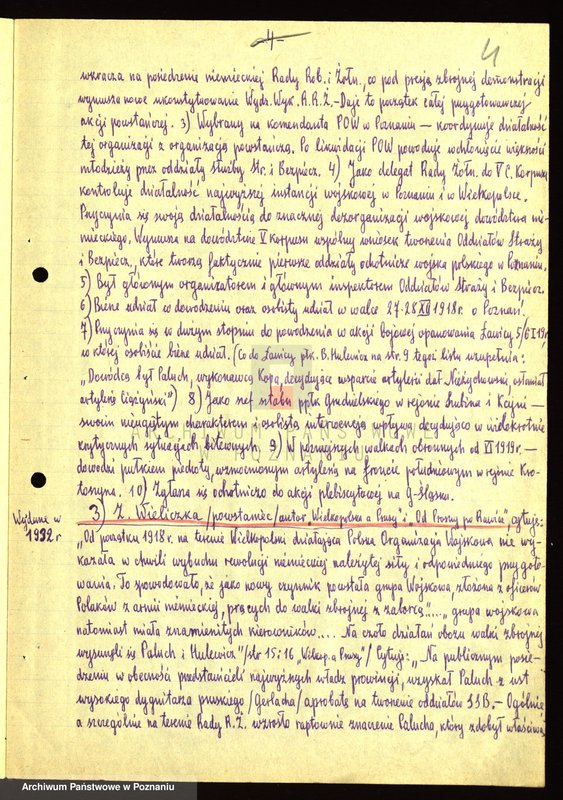 -4-
4
wkracza na posiedzenie niemieckiej Rady Rob. i Żołn., co pod presją zbrojnej demonstracji
wymusza nowe ukonstytuowanie Wydz. Wyk. R.R.Ż. – Daje to początek całej przygotowawczej
akcji powstańczej. 3) Wybrany na komendanta POW w Poznaniu – koordynuje działalność
tej organizacji z organizacją powstańczą. Po likwidacji POW powoduje wchłonięcie większości
młodzieży przez oddziały służby Str. i Bezpiecz. 4) Jako delegat Rady Żołn. do V C. Korpusu
kontroluje działalność najwyższej instancji wojskowej w Poznaniu i w Wielkopolsce.
Przyczynia się swoją działalnością do znacznej dezorganizacji wojskowej dowództwa nie-
mieckiego. Wymusza na dowództwie V Korpusu wspólny wniosek tworzenia Oddziałów Straży
i Bezpiecz., które tworzą faktycznie pierwsze oddziały ochotnicze wojska polskiego w Poznaniu.
5) Był głównym organizatorem i głównym inspektorem Oddziałów Straży i Bezpiecz.
6) Bierze udział w dowodzeniu oraz osobisty udział w walce 27-28 XII 1918 r. o Poznań
7) Przyczynia się w dużym stopniu do powodzenia w akcji bojowej opanowania Ławicy 5/6 I 19 r.
w której osobiście bierze udział. (Co do Ławicy płk. B. Hulewicz na str. 9 tegoż listu uzupełnia:
"Dowódcą był Paluch, wykonawcą Kopa, decydujące wsparcie artylerii dał Nieżychowski, osłaniał
artylerię Ciążyński") 8) Jako szef sztabu ppłk Grudzielskiego w rejonie Szubina i Kcyni –
swoim nieugiętym charakterem i osobistą interwencją wpływa decydująco w wielokrotnie
krytycznych sytuacjach bitewnych. 9) W późniejszych walkach obronnych od VI 1919 r. –
dowodzi pułkiem piechoty, wzmocnionym artylerią na froncie południowym w rejonie Kro-
toszyna. 10) Zgłasza się ochotniczo do akcji plebiscytowej na G-Śląsku.
Wydane w
1932 r.
3) Z. Wieliczka /powstaniec/ autor "Wielkopolska a Prusy" i "Od Prosny po Rawicz", cytuję:
"Od początku 1918 r. na terenie Wielkopolski działająca Polska Organizacja Wojskowa nie wy-
kazała w chwili wybuchu rewolucji niemieckiej należytej siły i odpowiedniego przygoto-
wania. To spowodowało, że jako nowy czynnik powstała grupa Wojskowa, złożona z oficerów
Polaków z armii niemieckiej, prących do walki zbrojnej z zaborcą"..... "grupa wojskowa
natomiast miała znamienitych kierowników.... Na czoło działań obozu walki zbrojnej
wysunęli się Paluch i Hulewicz" /str 15 i 16 "Wielkop. a Prusy"/ Cytuję: "Na publicznym posie-
dzeniu w obecności przedstawicieli najwyższych władz prowincji, uzyskał Paluch z ust
wysokiego dygnitarza pruskiego /Gerlacha/ aprobatę na tworzenie oddziałów SSB. – Ogólnie
a szczególnie na terenie Rady R.Ż. wzrosło raptownie znaczenie Palucha, który zdobył właściwą
ARCHIWUM PAŃSTWOWE
W POZNANIU
Archiwum Państwowe w Poznaniu